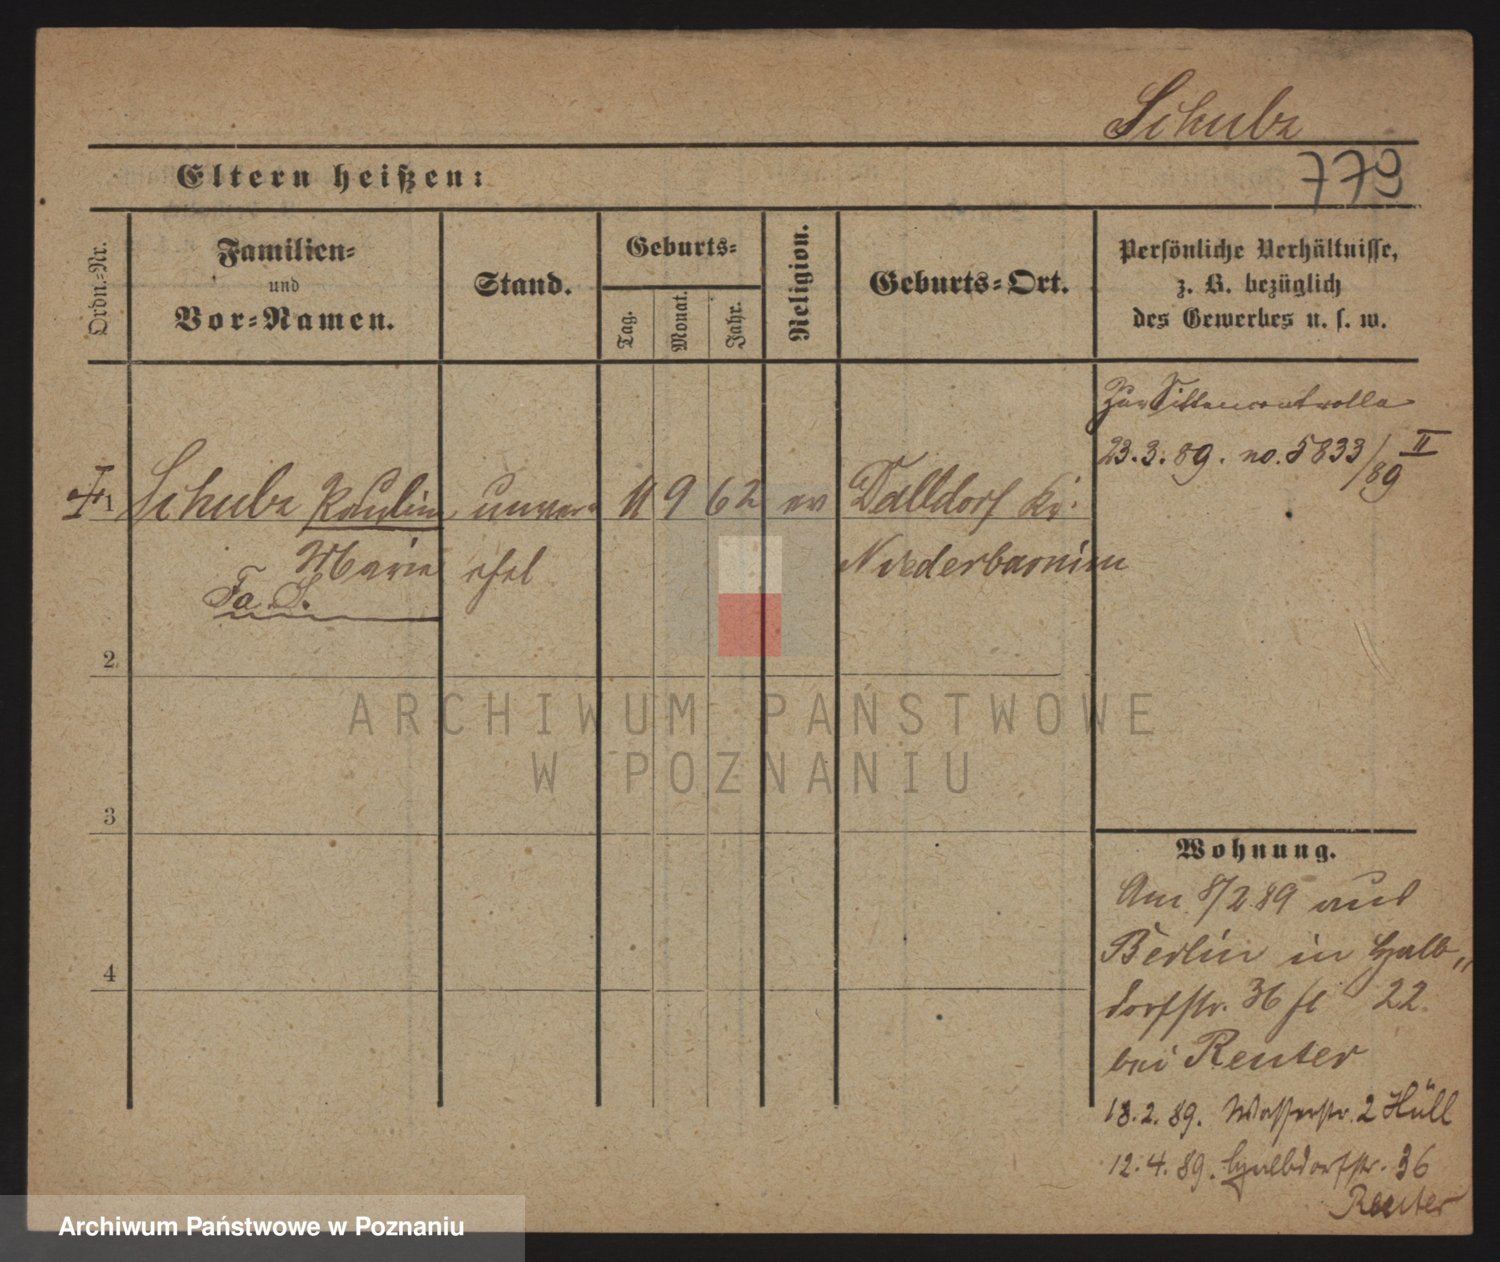 Schulz
Eltern heißen:
773
Ordn.-Nr.
Familien-
und
Vor-Namen.
Stand.
Geburts-
Tag.
Monat.
Jahr.
Religion.
Geburts-Ort.
Persönliche Verhältnisse,
z. B. bezüglich
des Gewerbes u. s. w.
Zur Sittencontrolle
23.3.89. no. 5833/89 II
1 Schulz Pauline unver- 11 9 62 ev Dalldorf Kr.
Marie ehel Niederbarnim
Fa. S.
2
3
4
Wohnung.
Am 8/2 89 aus
Berlin in Halb„
dorfstr. 36 22.
bei Reuter
18.2.89. Wasserstr. 2 Hüll
12.4.89. Halbdorfstr. 36
Reuter
ARCHIWUM PAŃSTWOWE
W POZNANIU
Archiwum Państwowe w Poznaniu